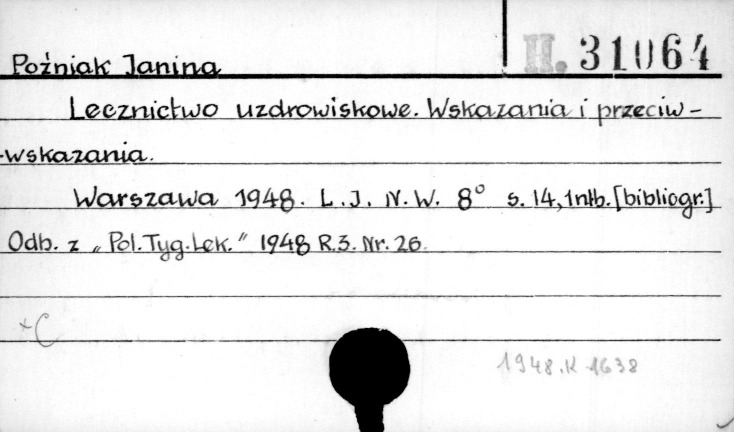 II. 31064
Poźniak Janina
Lecznictwo uzdrowiskowe. Wskazania i przeciw-
-wskazania.
Warszawa 1948. L.J. N.W. 8° s. 14, 1nlb. [bibliogr.]
Odb. z „Pol. Tyg. Lek.” 1948 R.3. Nr. 26.
+C
1948.K 1638